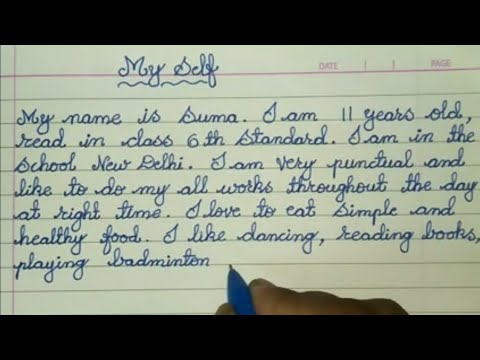 My Self
DATE
PAGE
My name is Suma. I am 11 years old,
read in class 6th Standard. I am in the
School New Delhi. I am very punctual and
like to do my all works throughout the day
at right time. I love to eat simple and
healthy food. I like dancing, reading books,
playing badminton